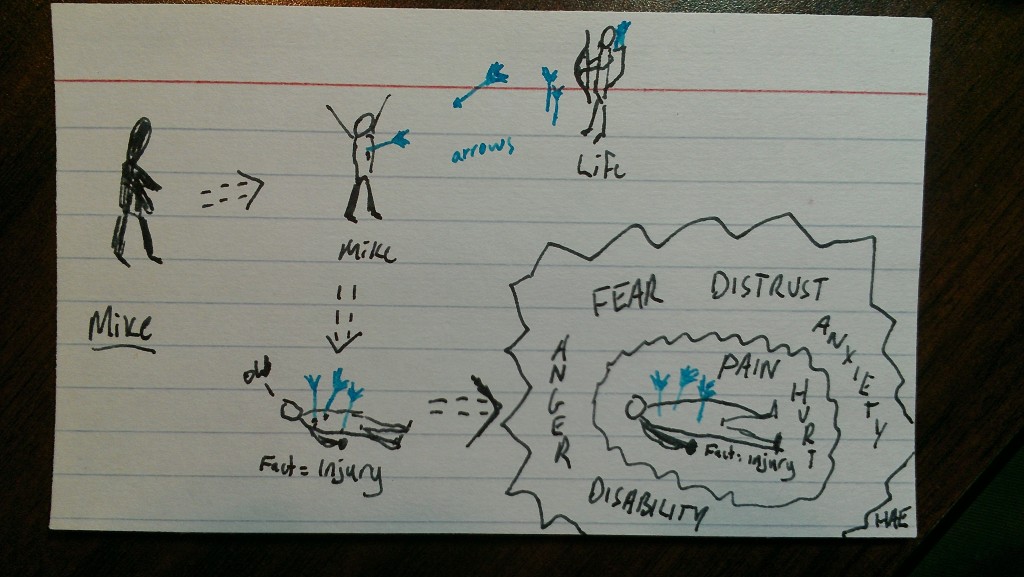 arrows
Life
Mike
Mike
FEAR DISTRUST
ANXIETY
ANGER
PAIN
HURT
Fact = injury
Fact: injury
DISABILITY
HAE